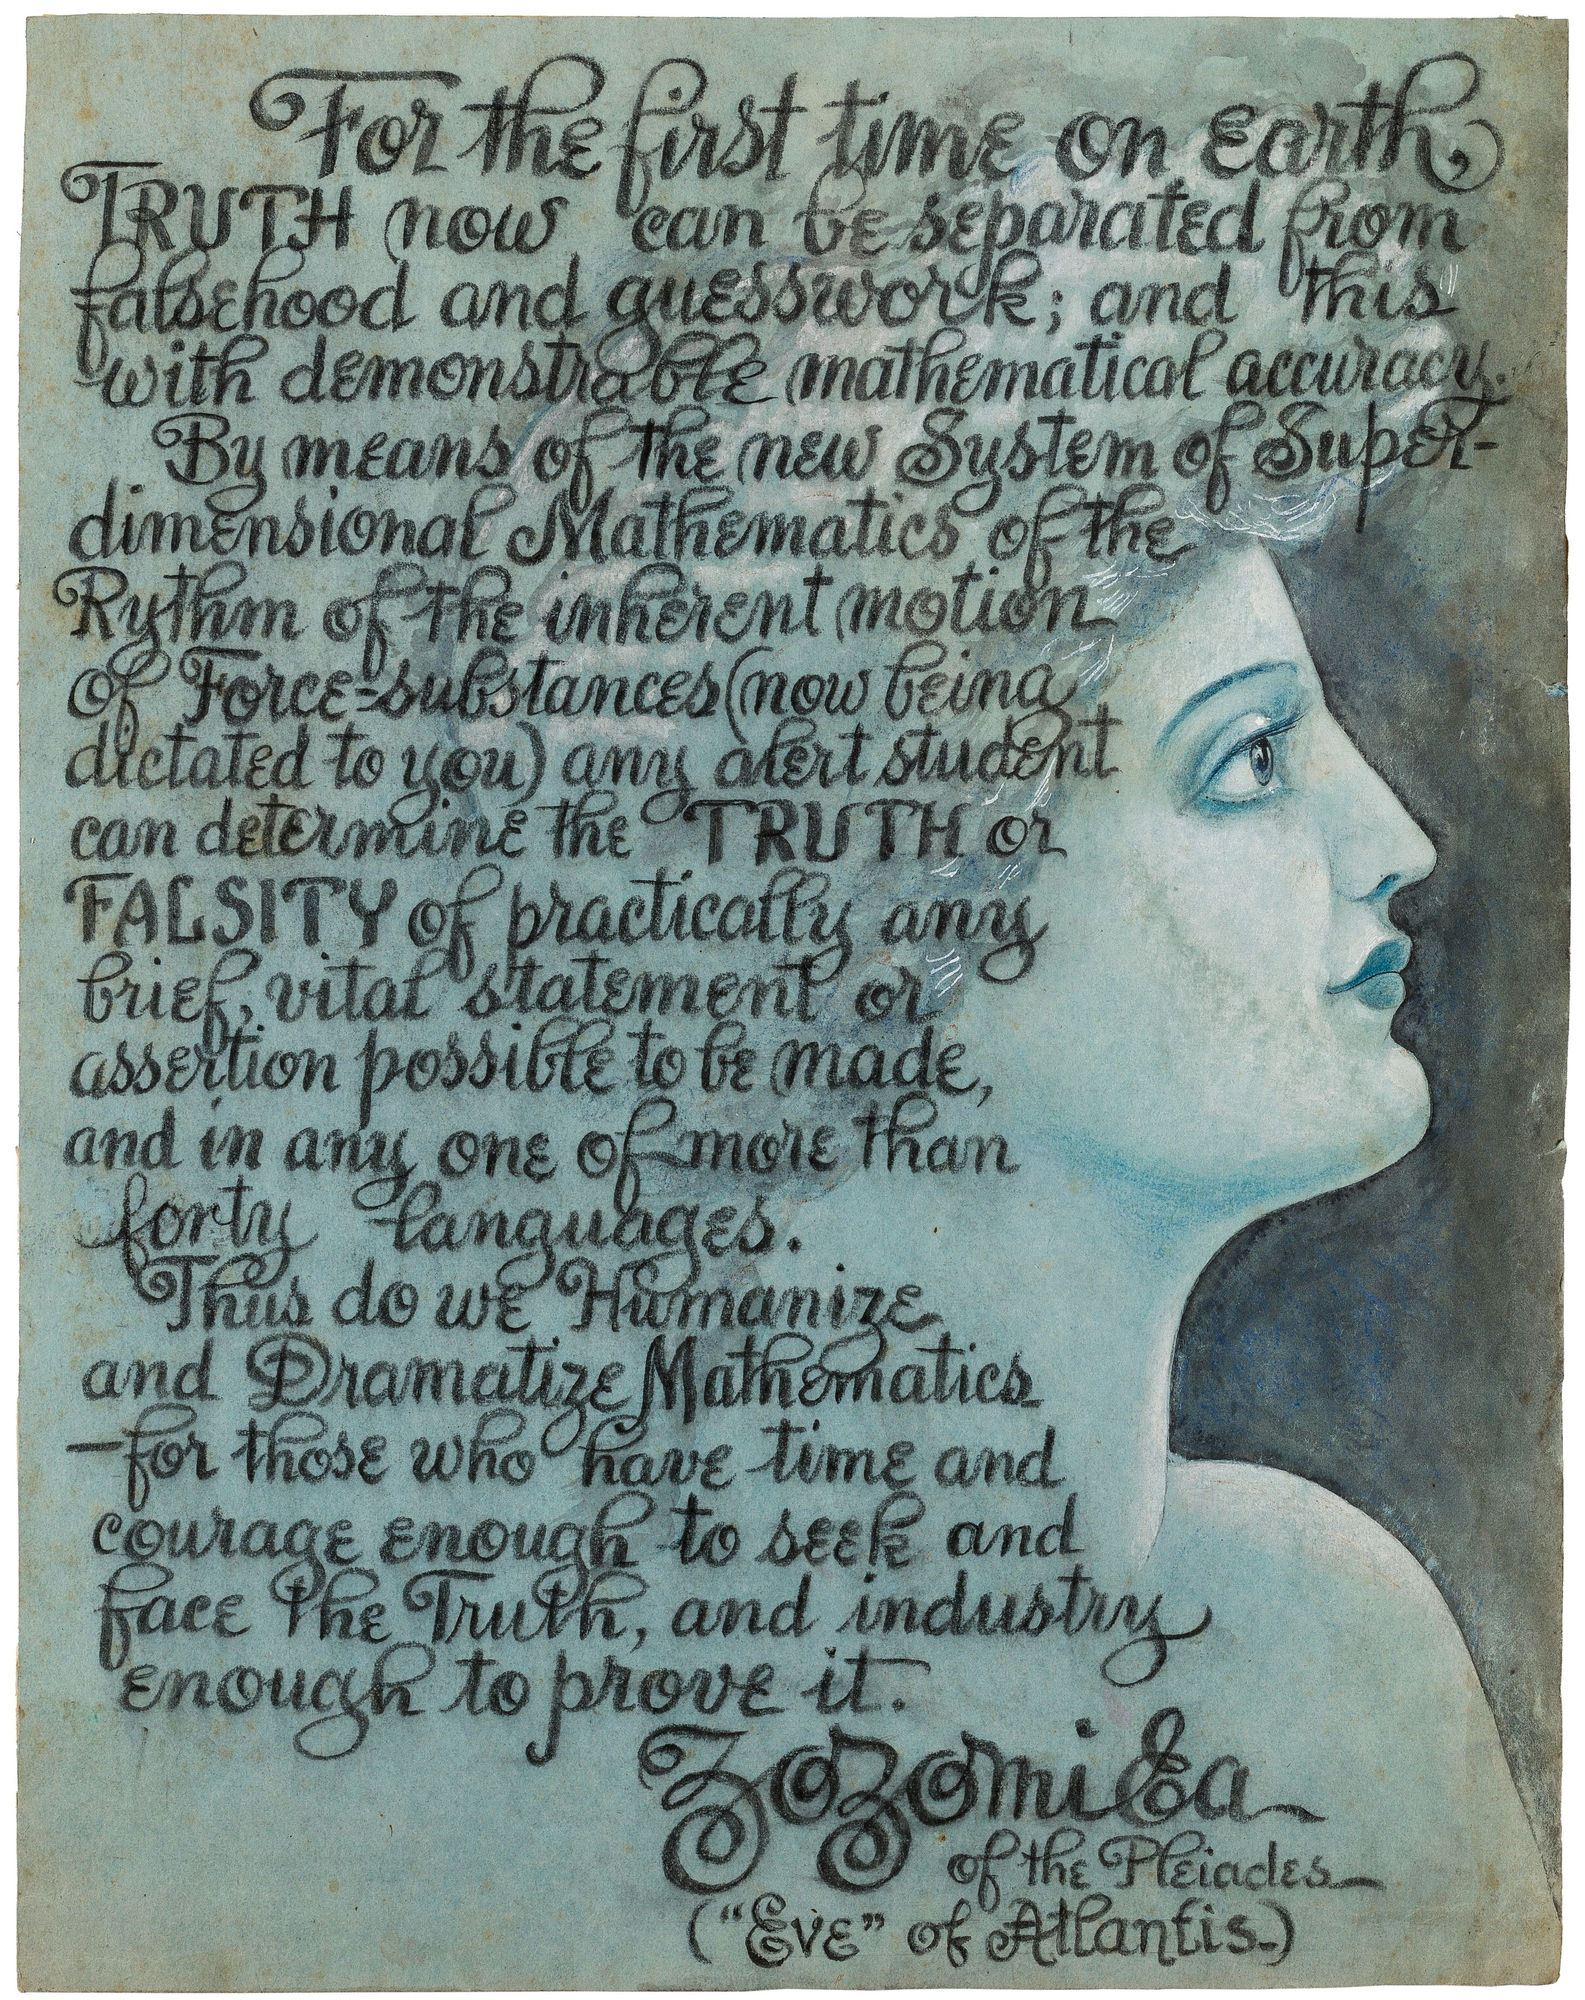 For the first time on Earth,
TRUTH now can be separated from
falsehood and guesswork; and this
with demonstrable mathematical accuracy.
By means of the new System of Super-
dimensional Mathematics of the
Rythm of the inherent motion
of Force-substances (now being
dictated to you) any alert student
can determine the TRUTH or
FALSITY of practically any
brief, vital statement or
assertion possible to be made,
and in any one of more than
forty languages.
Thus do we Humanize
and Dramatize Mathematics
—for those who have time and
courage enough to seek and
face the Truth, and industry
enough to prove it.
ZoZomi Ea
of the Pleiades—
("Eve" of Atlantis.)